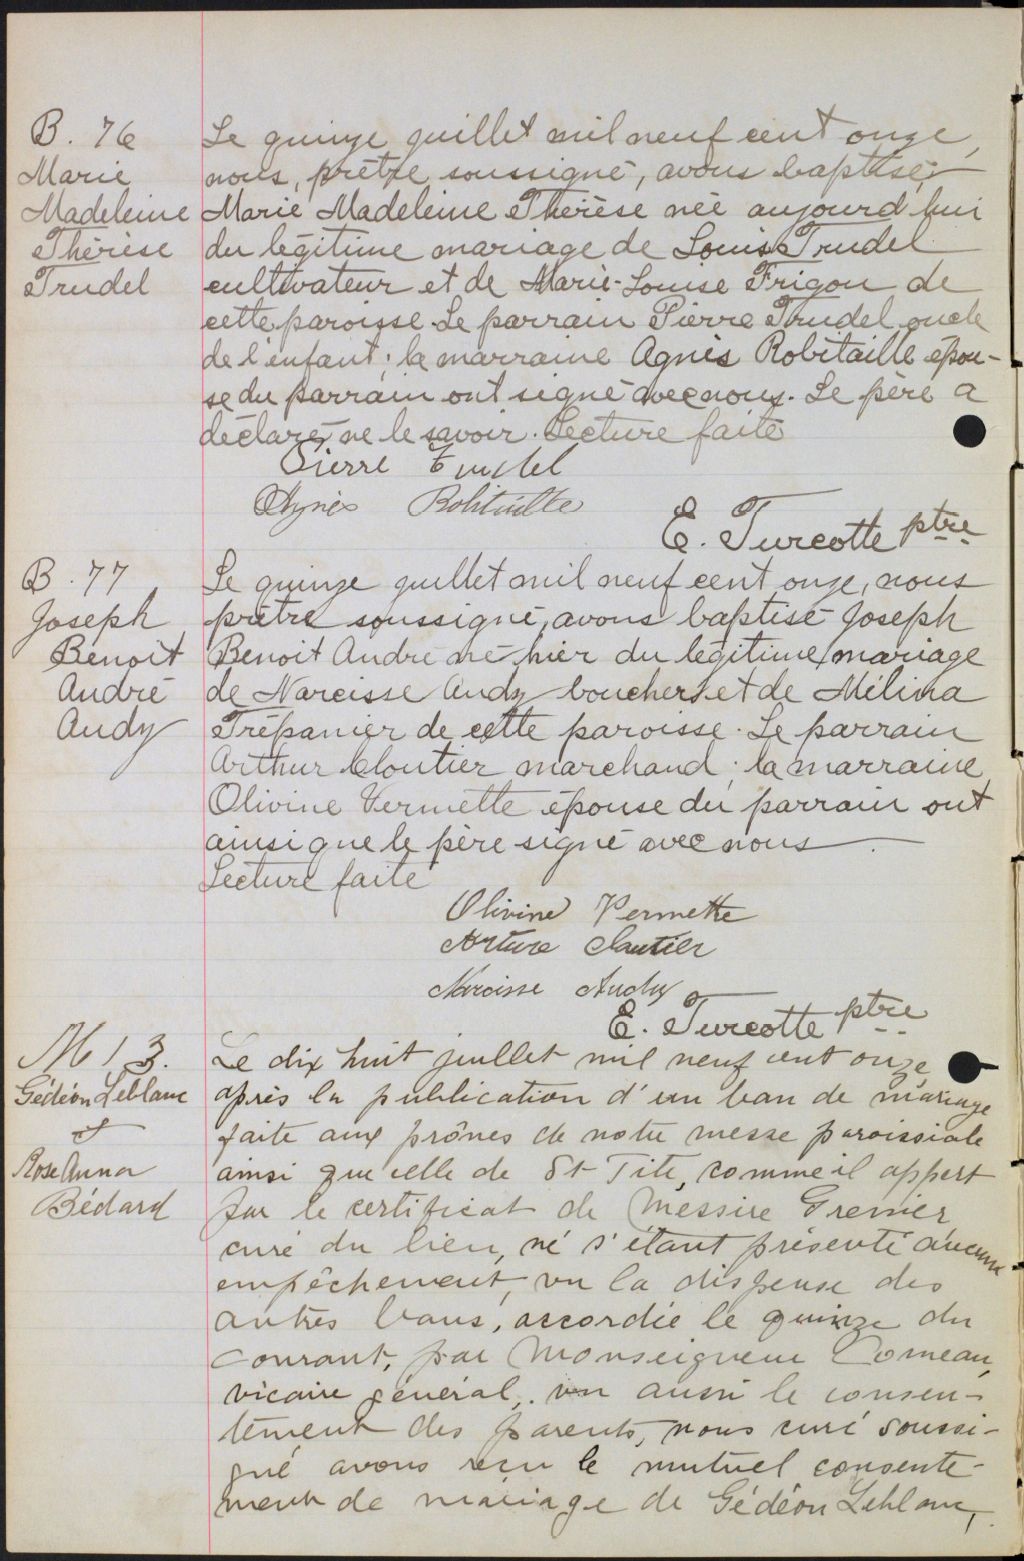 B. 76
Marie
Madeleine
Thérèse
Trudel
Le quinze juillet mil neuf cent onze,
nous, prêtre soussigné, avons baptisé
Marie Madeleine Thérèse née aujourd'hui
du légitime mariage de Louis Trudel
cultivateur et de Marie-Louise Frigon de
cette paroisse. Le parrain Pierre Trudel oncle
de l'enfant; la marraine Agnès Robitaille épou-
se du parrain ont signé avec nous. Le père a
déclaré ne le savoir. Lecture faite
Pierre Trudel
Agnès Robitaille
E. Turcotte ptre
B. 77
Joseph
Benoit
André
Audy
Le quinze juillet mil neuf cent onze, nous
prêtre soussigné, avons baptisé Joseph
Benoit André né hier du légitime mariage
de Narcisse Audy boucher et de Mélina
Trépanier de cette paroisse. Le parrain
Arthur Cloutier marchand; la marraine
Olivine Vermette épouse du parrain ont
ainsi que le père signé avec nous
Lecture faite
Olivine Vermette
Arture Cloutier
Narcisse Audy
E. Turcotte ptre
M 13.
Gédéon Leblanc
et
Rose Anna
Bédard
Le dix huit juillet mil neuf cent onze
après la publication d'un ban de mariage
faite aux prônes de notre messe paroissiale
ainsi que celle de St Tite, comme il appert
par le certificat de Messire Grenier
curé du lieu, ne s'étant présenté aucun
empêchement, vu la dispense des
autres bans, accordée le quinze du
courant, par Monseigneur Comeau,
vicaire général, vu aussi le consen-
tement des parents, nous curé soussi-
gné avons reçu le mutuel consente-
ment de mariage de Gédéon Leblanc,